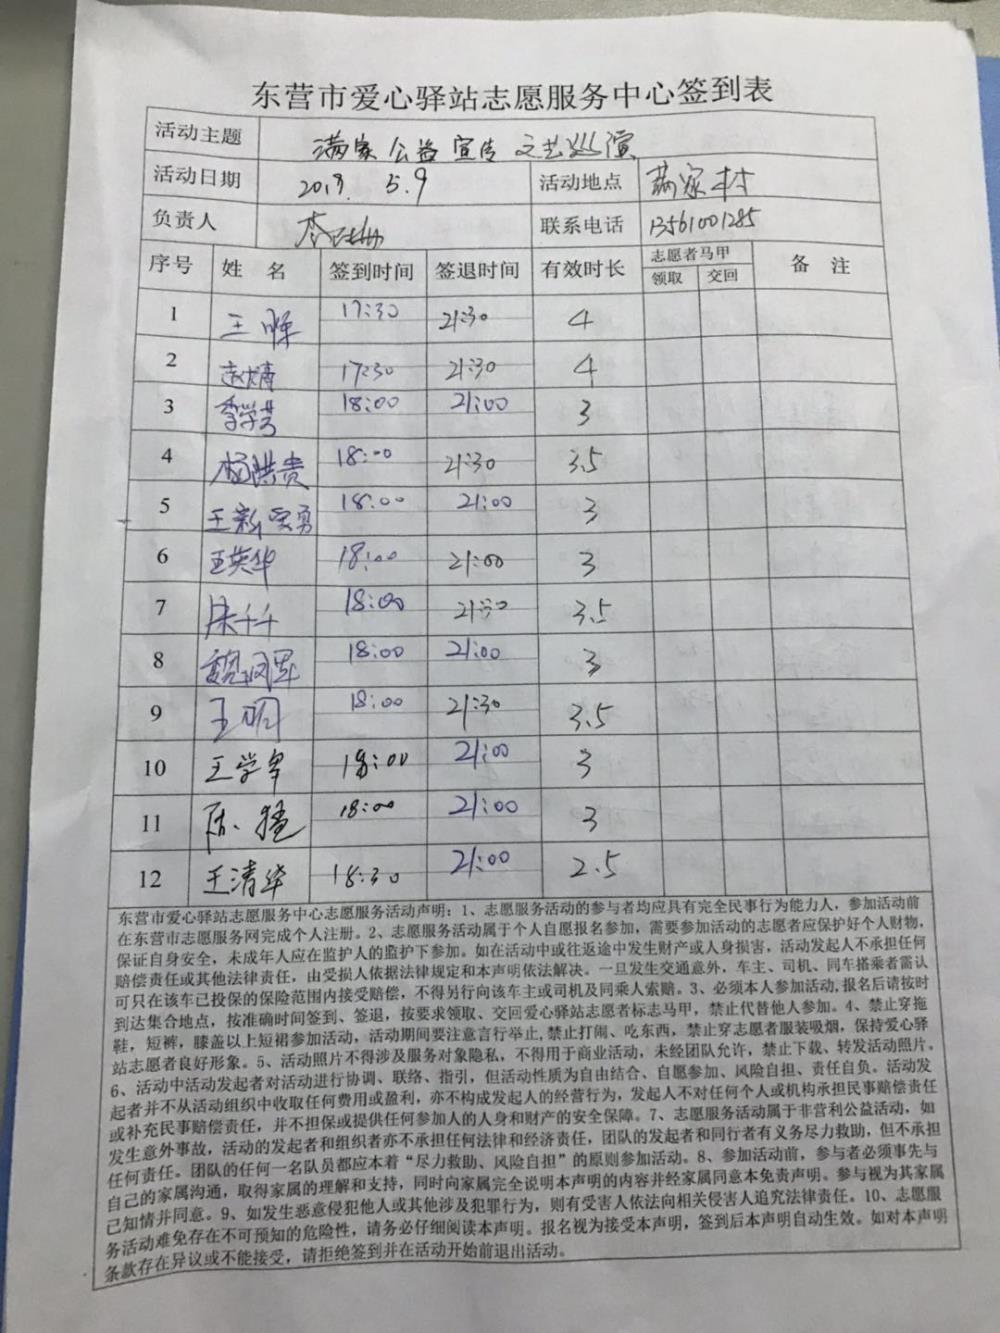 东营市爱心驿站志愿服务中心签到表
活动主题 满家公益宣传文艺巡演
活动日期 2018. 5.9 活动地点 满家村
负责人 联系电话 13561001285
序号 姓 名 签到时间 签退时间 有效时长 志愿者马甲 备 注
领取 交回
1 王 17:30 21:30 4
2 赵 17:30 21:30 4
3 李学芳 18:00 21:00 3
4 杨洪贵 18:00 21:30 3.5
5 王新 勇 18:00 21:00 3
6 王英华 18:00 21:00 3
7 千千 18:00 21:30 3.5
8 魏 军 18:00 21:00 3
9 王明 18:00 21:30 3.5
10 王学 18:00 21:00 3
11 18:00 21:00 3
12 王清华 18:30 21:00 2.5
东营市爱心驿站志愿服务中心志愿服务活动声明：1、志愿服务活动的参与者均应具有完全民事行为能力人，参加活动前
在东营市志愿服务网完成个人注册。2、志愿服务活动属于个人自愿报名参加，需要参加活动的志愿者应保护好个人财物，
保证自身安全，未成年人应在监护人的监护下参加。如在活动中或往返途中发生财产或人身损害，活动发起人不承担任何
赔偿责任或其他法律责任，由受损人依据法律规定和本声明依法解决。一旦发生交通意外，车主、司机、同车搭乘者需认
可只在该车已投保的保险范围内接受赔偿，不得另行向该车主或司机及同乘人索赔。3、必须本人参加活动,报名后请按时
到达集合地点，按准确时间签到、签退，按要求领取、交回爱心驿站志愿者标志马甲，禁止代替他人参加。4、禁止穿拖
鞋，短裤，膝盖以上短裙参加活动，活动期间要注意言行举止,禁止打闹、吃东西，禁止穿志愿者服装吸烟，保持爱心驿
站志愿者良好形象。5、活动照片不得涉及服务对象隐私，不得用于商业活动，未经团队允许，禁止下载、转发活动照片。
6、活动中活动发起者对活动进行协调、联络、指引，但活动性质为自由结合、自愿参加、风险自担、责任自负。活动发
起者并不从活动组织中收取任何费用或盈利，亦不构成发起人的经营行为，发起人不对任何个人或机构承担民事赔偿责任
或补充民事赔偿责任，并不担保或提供任何参加人的人身和财产的安全保障。7、志愿服务活动属于非营利公益活动，如
发生意外事故，活动的发起者和组织者亦不承担任何法律和经济责任，团队的发起者和同行者有义务尽力救助，但不承担
任何责任。团队的任何一名队员都应本着“尽力救助、风险自担”的原则参加活动。8、参加活动前，参与者必须事先与
自己的家属沟通，取得家属的理解和支持，同时向家属完全说明本声明的内容并经家属同意本免责声明。参与视为其家属
己知情并同意。9、如发生恶意侵犯他人或其他涉及犯罪行为，则有受害人依法向相关侵害人追究法律责任。10、志愿服
务活动难免存在不可预知的危险性，请务必仔细阅读本声明。报名视为接受本声明，签到后本声明自动生效。如对本声明
条款存在异议或不能接受，请拒绝签到并在活动开始前退出活动。